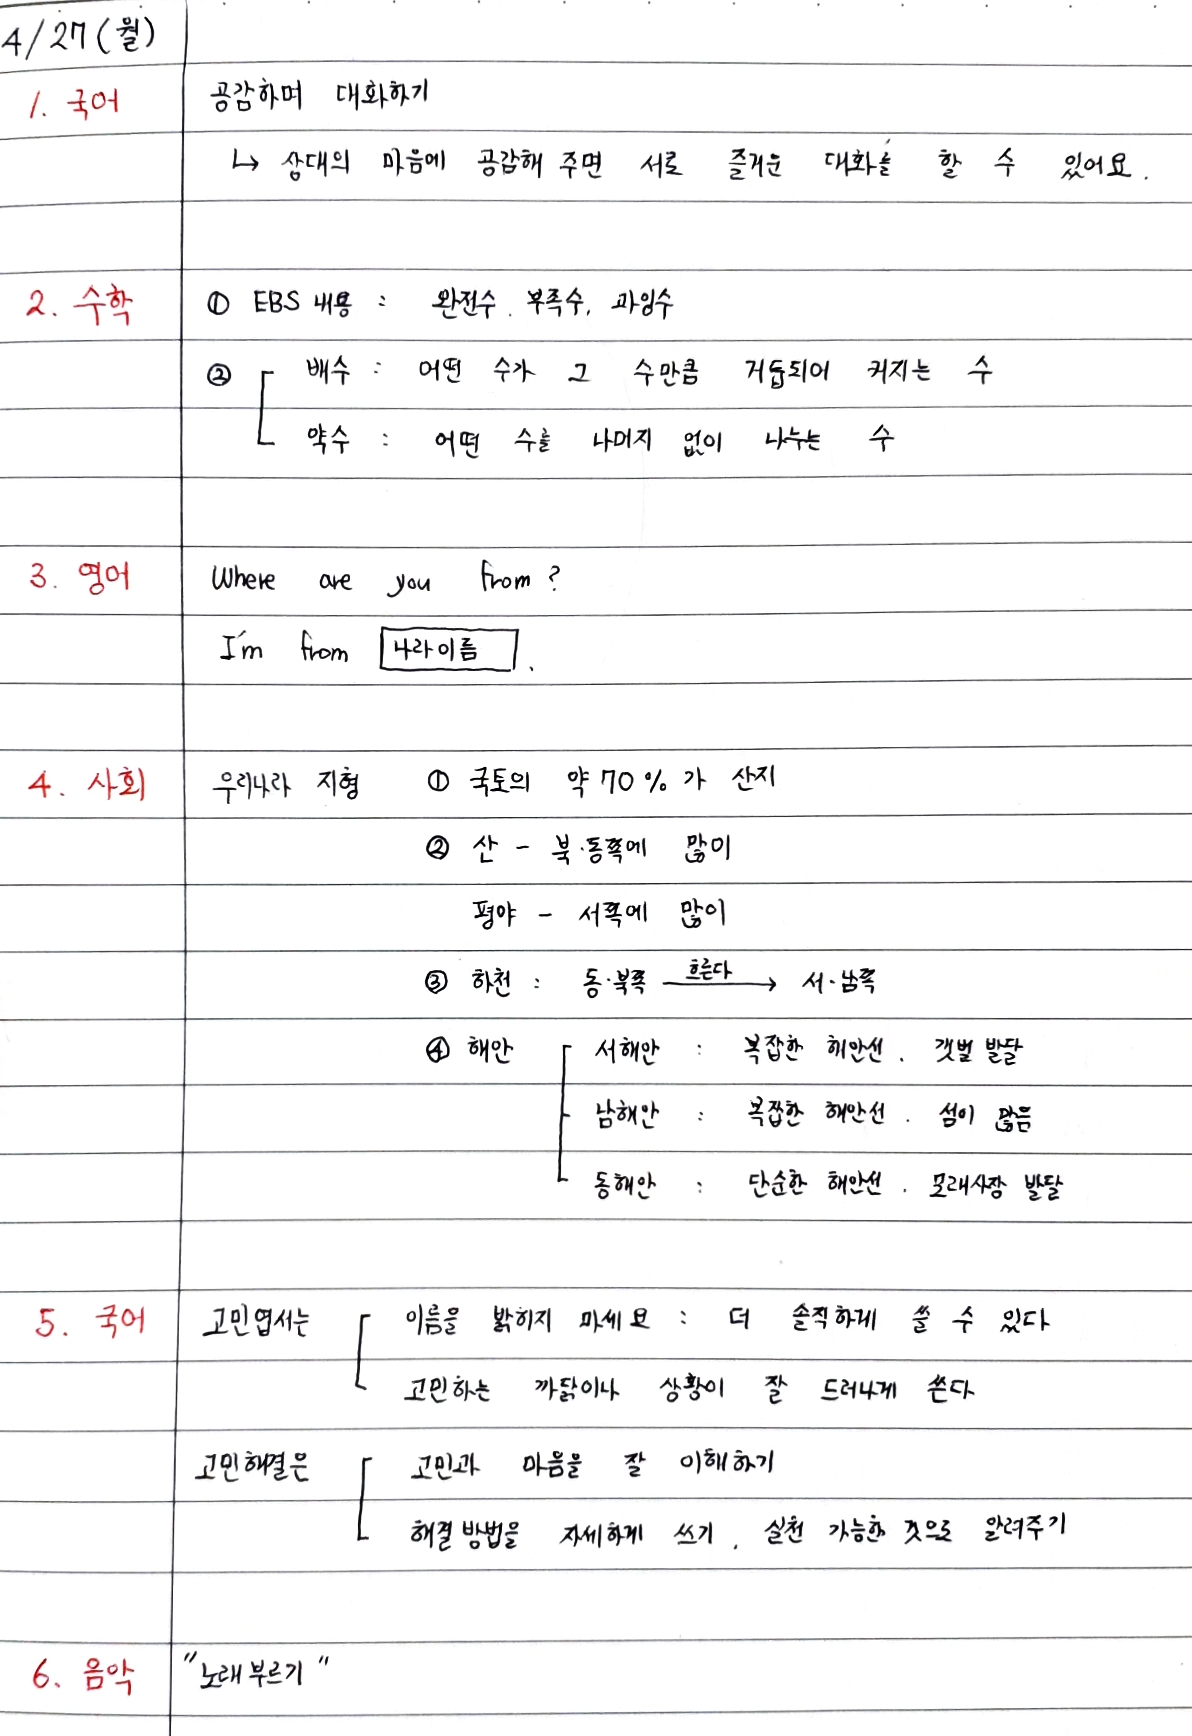 4/27(월)
1. 국어 공감하며 대화하기
↳ 상대의 마음에 공감해 주면 서로 즐거운 대화를 할 수 있어요.
2. 수학 ① EBS 내용 : 완전수. 부족수, 과잉수
② 배수 : 어떤 수가 그 수만큼 거듭되어 커지는 수
약수 : 어떤 수를 나머지 없이 나누는 수
3. 영어 Where are you from?
I'm from 나라이름 .
4. 사회 우리나라 지형 ① 국토의 약 70%가 산지
② 산 - 북·동쪽에 많이
평야 - 서쪽에 많이
③ 하천 : 동·북쪽 흐른다 → 서·남쪽
④ 해안 서해안 : 복잡한 해안선. 갯벌 발달
남해안 : 복잡한 해안선. 섬이 많음
동해안 : 단순한 해안선. 모래사장 발달
5. 국어 고민엽서는 이름을 밝히지 마세요 : 더 솔직하게 쓸 수 있다
고민하는 까닭이나 상황이 잘 드러나게 쓴다
고민해결은 고민과 마음을 잘 이해하기
해결방법을 자세하게 쓰기, 실천 가능한 것으로 알려주기
6. 음악 "노래부르기"